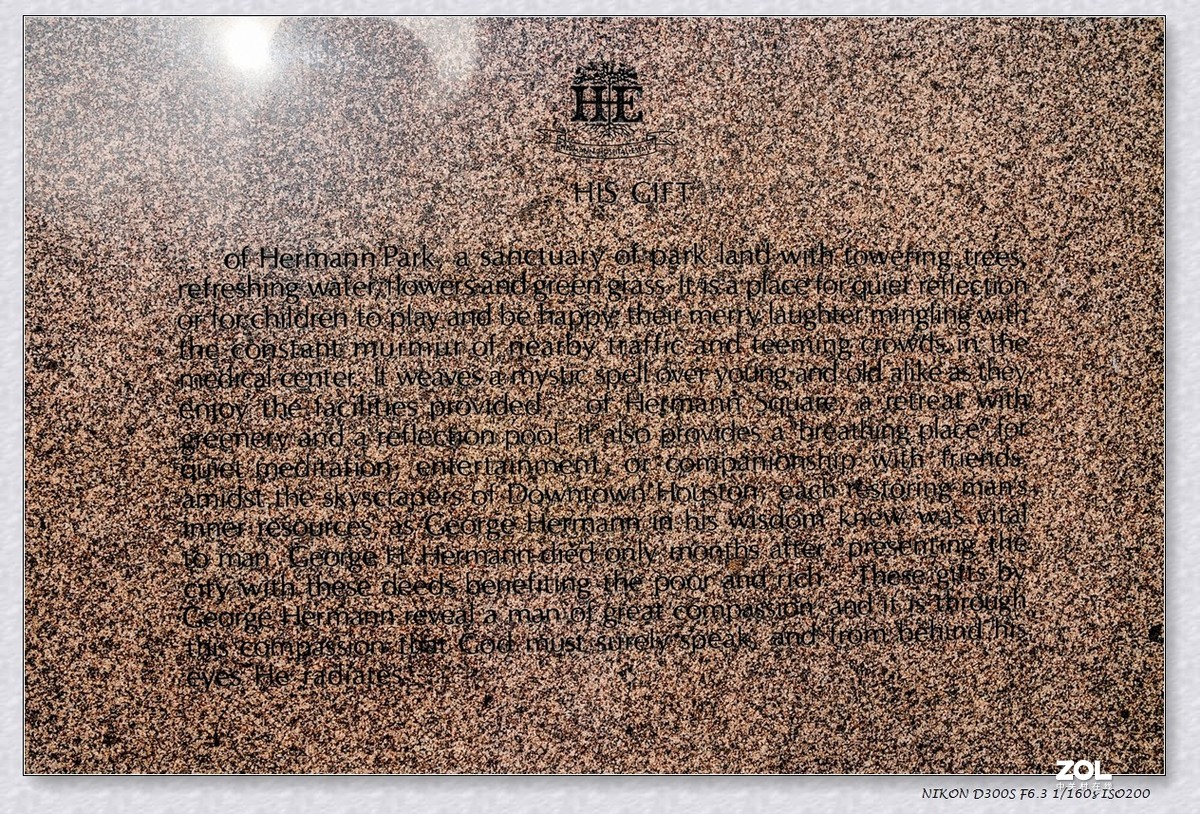 HE
HIS GIFT
of Hermann Park, a sanctuary of park land with towering trees,
refreshing water, flowers and green grass. It is a place for quiet reflection
or for children to play and be happy, their merry laughter mingling with
the constant murmur of nearby traffic and teeming crowds in the
medical center. It weaves a mystic spell over young and old alike as they
enjoy the facilities provided... of Hermann Square, a retreat with
greenery and a reflection pool. It also provides a "breathing place" for
quiet meditation, entertainment, or companionship with friends,
amidst the skyscrapers of Downtown Houston; each restoring man's
inner resources, as George Hermann in his wisdom knew was vital
to man. George H. Hermann died only months after "presenting the
city with these deeds benefiting the poor and rich." These gifts by
George Hermann reveal a man of great compassion, and it is through
this compassion that God must surely speak, and from behind his
eyes He radiates.
ZOL
中关村在线
NIKON D300S F6.3 1/160s ISO200